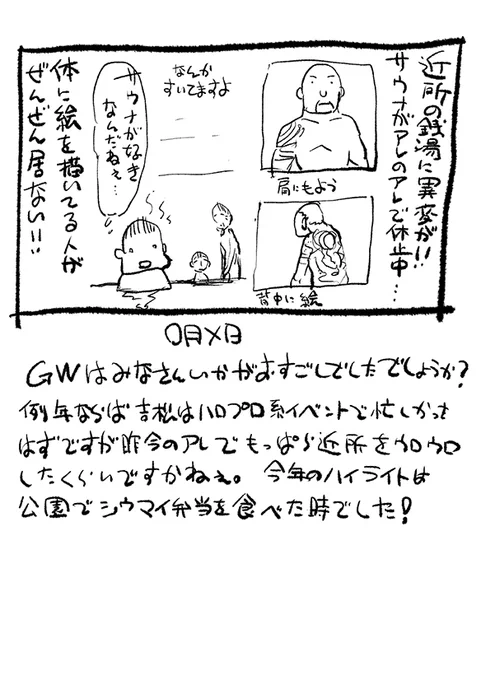 近所の銭湯に異変が!!
サウナがアレのアレで休止中…
肩にもよう
背中に絵
なんか
すいてますよ
サウナが好き
なんだねぇ…
体に絵を描いてる人が
ぜんぜん居ない!!
〇月×日
GWはみなさんいかがおすごしでしたでしょうか?
例年ならば吉松はハロプロ系イベントで忙しかった
はずですが昨今のアレでもっぱら近所をウロウロ
したくらいですかねぇ。今年のハイライトは
公園でシウマイ弁当を食べた時でした!